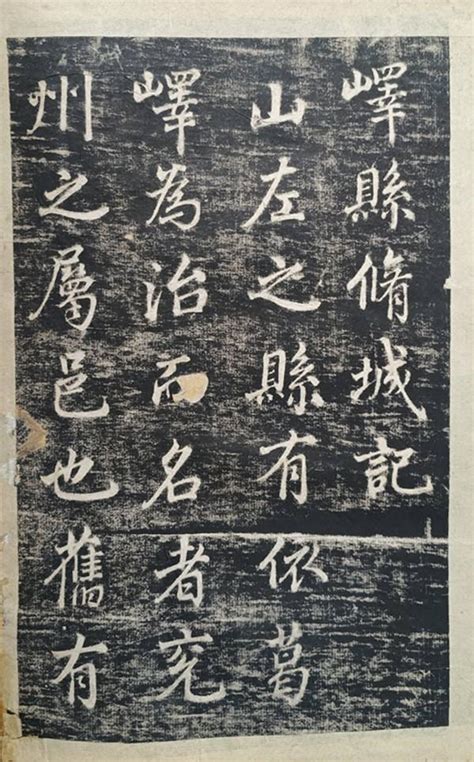 嶧縣脩城記
山左之縣有依葛
嶧為治而名者兖
州之屬邑也舊有